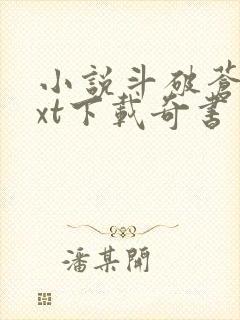 小説斗破蒼
xt下載奇書
潘某開